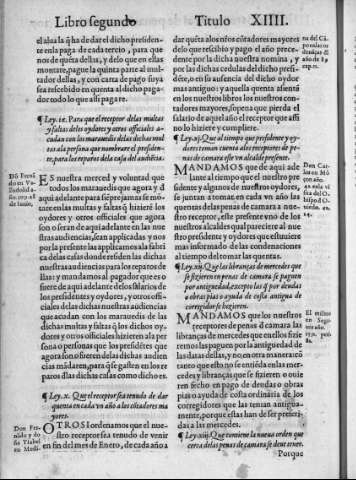 Libro segundo Titulo XIIII.
el alua la q̃ ha de dar el dicho presiden
te en la paga de cada tercio, para que
nos de queta dellas, y delo que en ellas
montare, pague la quinta parte al mul
tador dellas, y con carta de pago suya
sea rescebido en quenta al dicho paga
dor todo lo que assi pagare.
¶ Ley. ix. Para que el receptor delas multas
y faltas delos oydores y otros officiales a
cudan con los marauedis delas dichas mul
tas ala persona que nombrare el presiden-
te, para los reparos dela casa del audiẽcia.
ES nuestra merced y voluntad que
todos los marauedis que agora y d̃
aqui adelante para siẽpre jamas se mõ-
tare en las multas y faltas q̃ hizierẽ los
oydores y otros officiales que agora
son o seran de aqui adelante en las nue
stras audiencias, sean applicadas y nos
por la presente las applicamos ala fabri
ca delas casas donde residen las dichas
nuestras audiencias para los reparos de
llas: y mandamos al pagador que es o
fuere de aqui adelante delos salarios de
los presidentes y oydores, y otros officia
les delas dichas nuestras audiencias
que acudan con los marauedis de las
dichas multas y faltas q̃ los dichos oy-
dores y otros officiales hizierẽ ala per
sona o personas que los presidẽtes que
agora son o fueren delas dichas audien
cias mãdaren, para q̃ se gasten en los re
paros dlas dichas casas como dicho es.
¶ Ley. x. Que el receptor sea tenudo de dar
quenta en cada vn año a los cõtadores ma
yores.
OTROSI ordenamos que el nue-
stro receptor sea tenudo de venir
en fin del mes de Enero, de cada año a
dar queta alos nr̃os cõtadores mayores
delo que rescibio y pago el año prece-
dente por la dicha nuestra nomina, y
por las dichas cedulas del dicho presi-
dẽte, o en su ausencia del dicho oydor
mas antiguo: y aquella quenta assienta
en los nuestros libros los nuestros con
tadores mayores, so pena que pierda el
salario de aquel año el receptor que assi
no lo hiziere y cumpliere.
¶ Ley. xj. Que al tiempo que presidente y oy-
dores tomen cuenta alos receptores de pe-
nas de camara este vn alcalde presente.
MANDAMOS que de aqui ade
lante al tiempo que el nuestro pre
sidente y algunos de nuestros oydores,
se juntan a tomar, en cada vn año las
quentas delas penas de camara a nue-
stro receptor, este presente vno de los
nuestros alcaldes qual pareciere al nue
stro presidente y oydores que estuuiere
mas informado de las condenaciones
al tiempo del tomar las quentas.
¶ Ley. xij. Que las libranças de mercedes que
se fizieren en penas de camara se paguen
por antiguedad, excepto las q̃ por deudas
a obras pias o ayuda de costa antigua de
corregidor se hizieren.
MANDAMOS que los nuestros
receptores de penas d̃ camara en
las libranças de mercedes que enellos fizie
remos las paguen por la antiguedad de
las datas dellas, y no en otra manera: cõ
tanto que esto no se entiẽda en las mer-
cedes y librãças que se fizieren o ouie
ren fecho en pago de deudas o obras
pias o ayuda de costa ordinaria de los
corregidores que las tenian antigua-
mente, porque estas han de ser preferi-
das a las mercedes.
¶ Ley. xiij. Que contiene la nueua orden que
cerca delas penas de camara se deue tener.
Porque